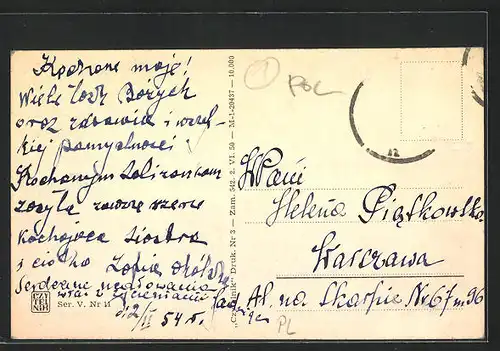 Kochane moje!
Wiele Łask Bożych
oraz zdrowia i wszel-
kiej pomyślności
Kochanym Solizankom
życzy zawsze szczerze
kochająca siostra
i ciotka Zofia
Serdeczne ucałowania
wraz z życzeniami
d. 2/II 54 r.
CZYTELNIK
Ser. V. Nr
"Czytelnik" Druk. Nr 3 — Zam. 542. 2. VI. 50 — M-1-20437 — 10.000
1
POL
12
WPani
Helena Piątkowska
Warszawa
Al. na Skarpie Nr 67 m 96
PL